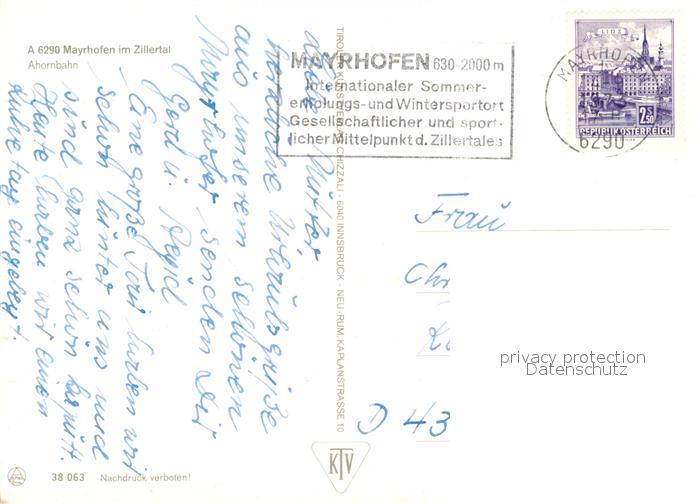 A 6290 Mayrhofen im Zillertal
Ahornbahn
MAYRHOFEN 630-2000 m
Internationaler Sommer-
erholungs- und Wintersportort
Gesellschaftlicher und sport-
licher Mittelpunkt d. Zillertales
LINZ
2.50
REPUBLIK ÖSTERREICH
MAYRHOFEN
6290
Liebe Mutter
herzliche Urlaubsgrüße
aus unserem schönen
Mayrhofen senden Dir
Gerd u.
Eine große Tour haben wir
schon hinter uns und
sind ganz schön kaputt.
Heute haben wir einen
Ruhetag eingelegt.
TIROLER KUNSTVERLAG CHIZZALI · 6040 INNSBRUCK - NEU-RUM, KAPLANSTRASSE 10
Frau
Chr
D 43
privacy protection
Datenschutz
KTV
38 063 Nachdruck verboten!